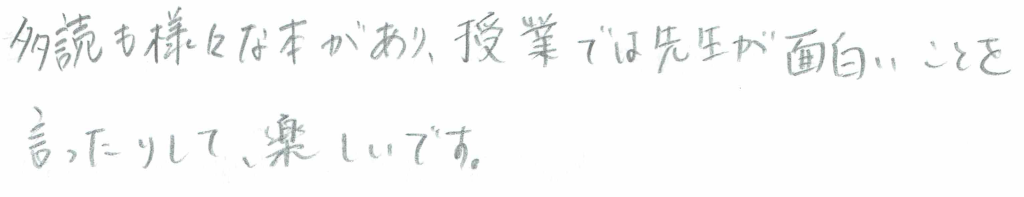 多読も様々な本があり、授業では先生が面白いことを
言ったりして、楽しいです。